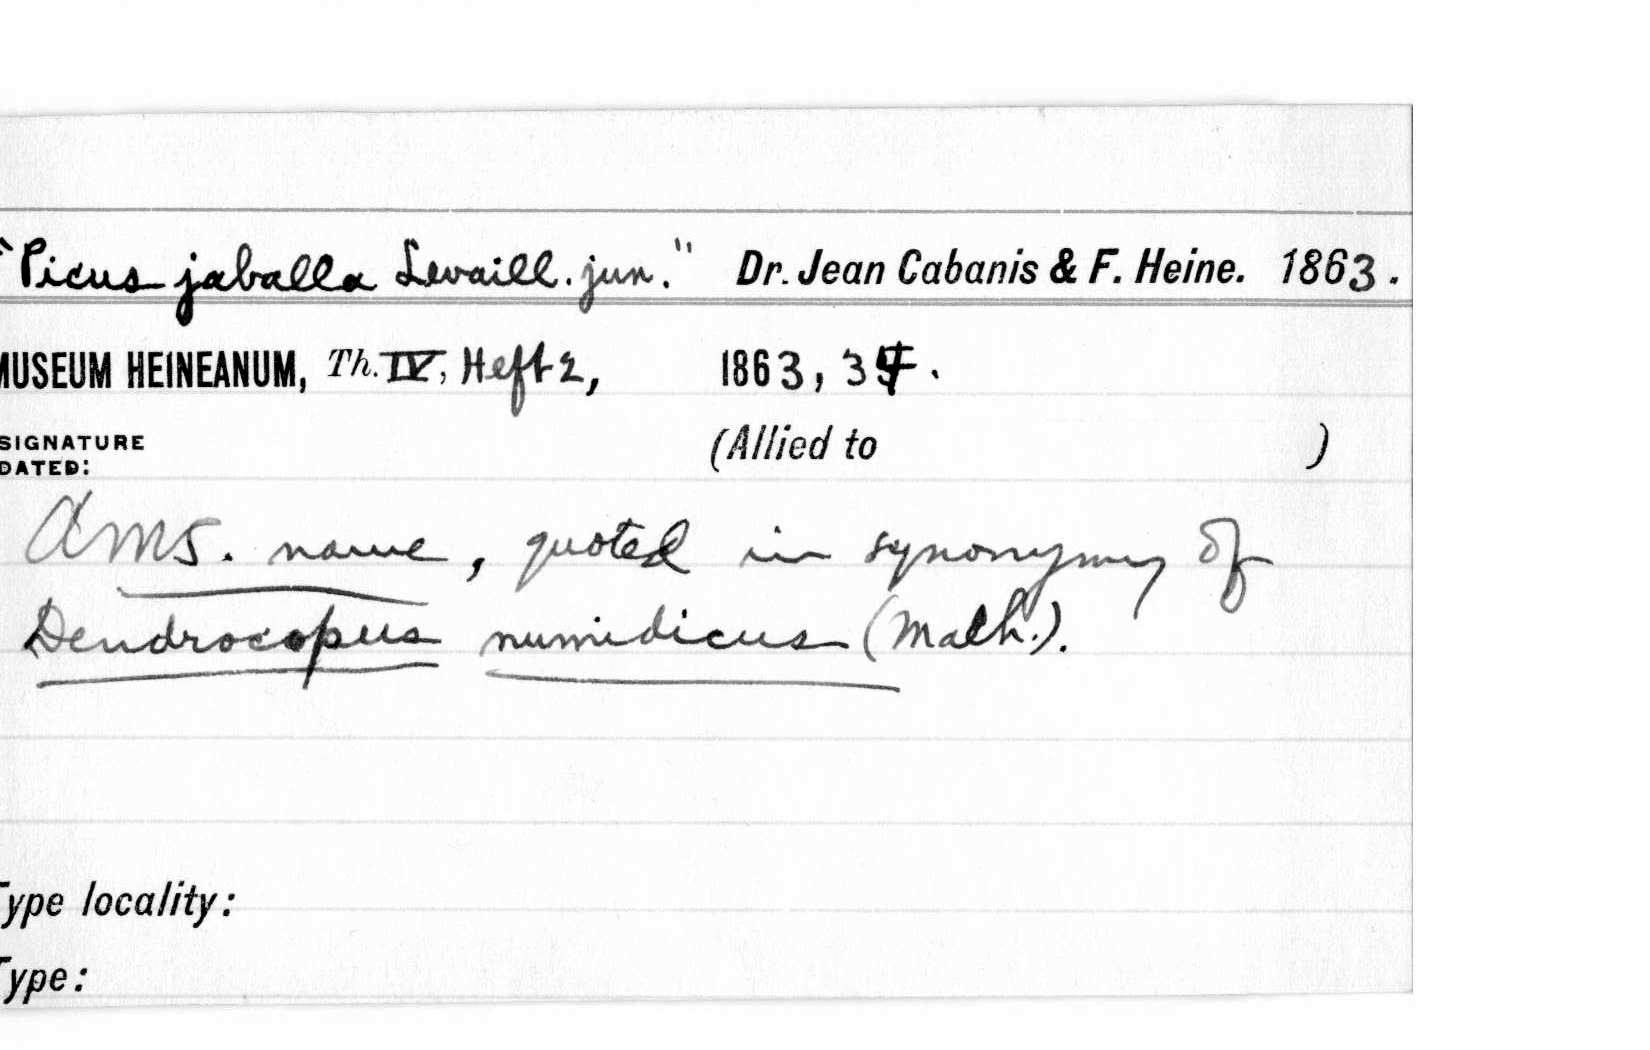 "Picus jaballa Levaill. jun." Dr. Jean Cabanis & F. Heine. 1863.
MUSEUM HEINEANUM, Th. IV, Heft 2, 1863,
SIGNATURE
DATED:
(Allied to )
A MS. name, quoted in synonymy of
Dendrocopus numidicus (Malh.).
Type locality:
Type: